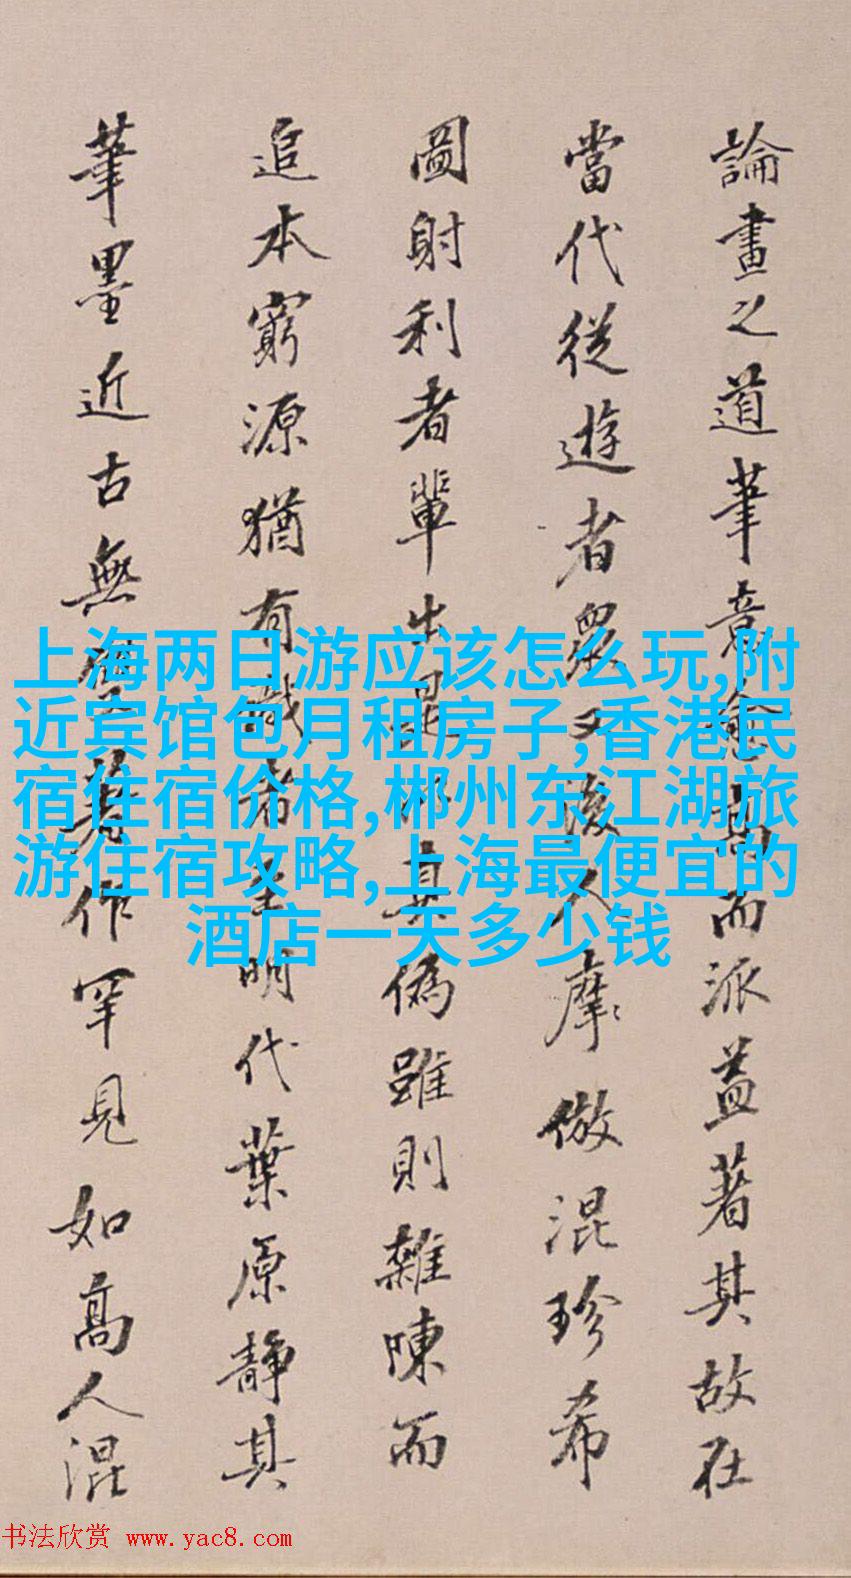 論畫之道筆意愈高而派益著其故在
當代從遊者眾又後人摩倣混珍希
圖射利者輩出是以真偽雖則雜陳而
追本窮源猶有識者至明代葉原靜其
筆墨近古無著作罕見如高人混
上海两日游应该怎么玩,附
近宾馆包月租房子,香港民
宿住宿价格,郴州东江湖旅
游住宿攻略,上海最便宜的
酒店一天多少钱
书法欣赏 www.yac8.com